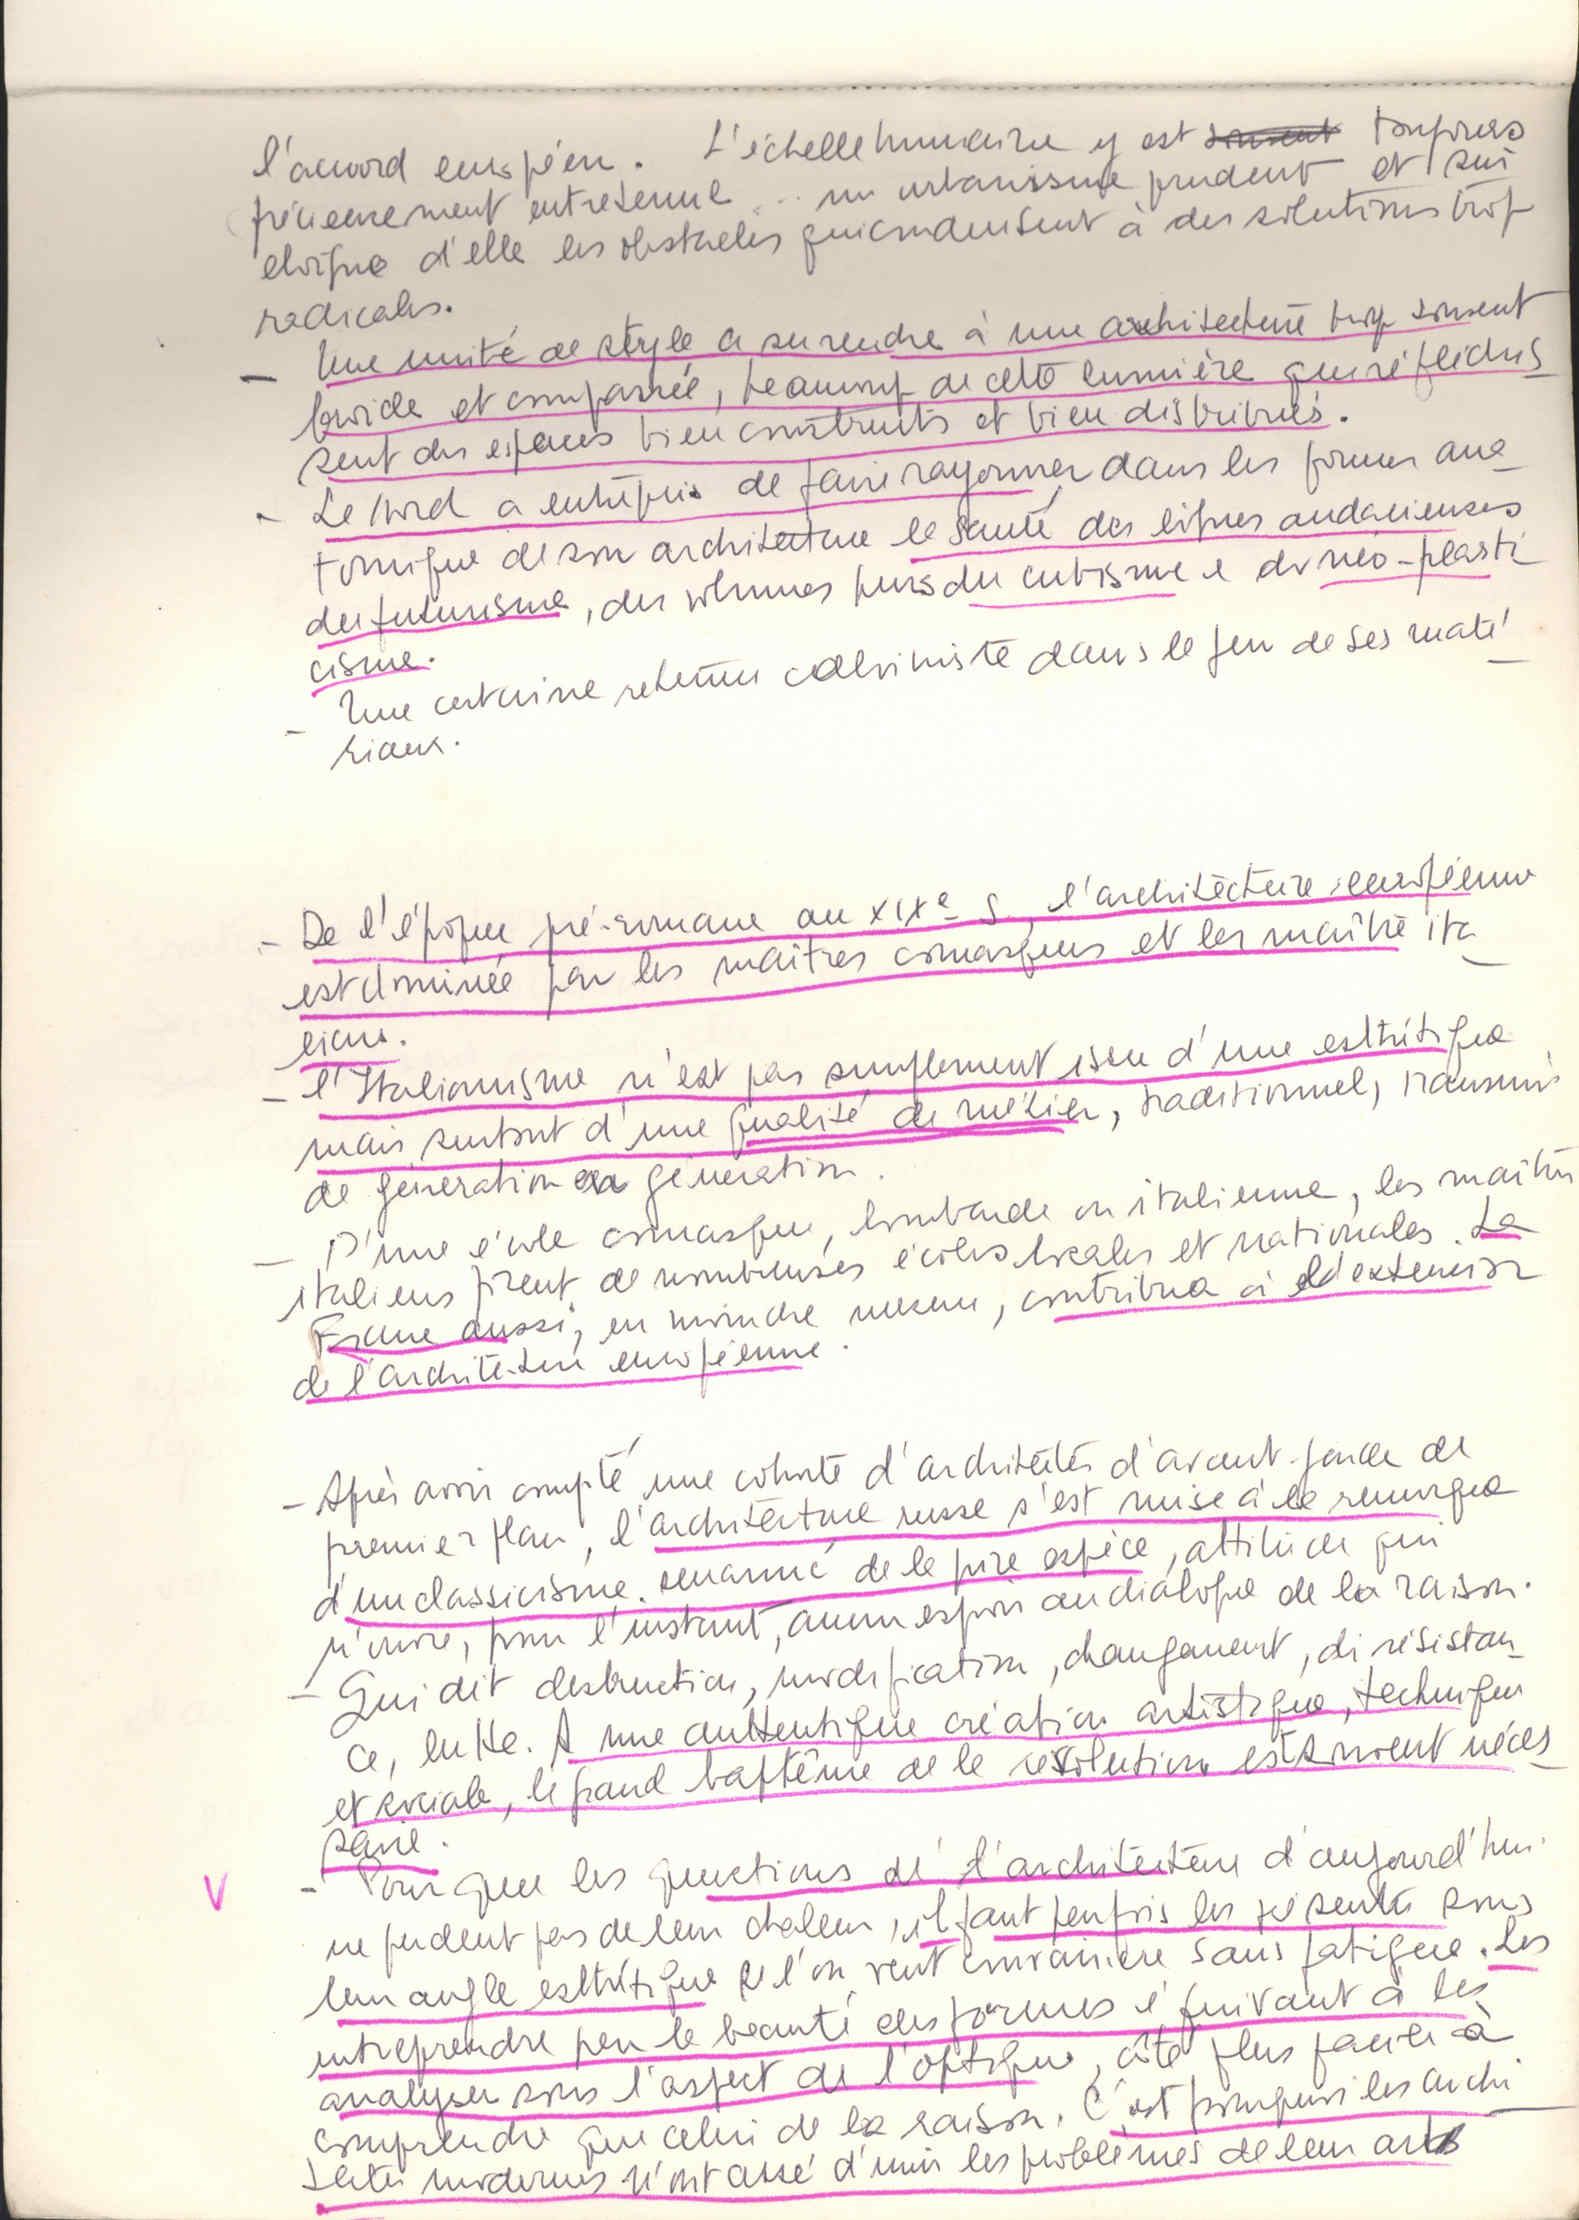 l'accord européen. L'échelle humaine y est souvent toujours
précieusement entretenue... un urbanisme prudent et sui
eloigne d'elle les obstacles qui conduisent à des solutions trop
radicales.
- Une unité de style a su rendre à une architecture trop souvent
froide et compassée, beaucoup de cette lumière que réfléchis
sent des espaces bien construits et bien distribués.
- Le Nord a entrepris de faire rayonner dans les formes ana
tomique de son architecture la santé des lignes audacieuses
du futurisme, des volumes purs du cubisme e du néo-plasti
cisme.
- Une certaine retenue calviniste dans le jeu de ses maté
riaux.
- De l'époque pré-romane au XIXe s., l'architecture européenne
est dominée par les maîtres comasques et les maître ita
liens.
- l'Italianisme n'est pas simplement issu d'une esthétique
mais surtout d'une qualité de métier, traditionnel, transmis
de génération en génération.
- D'une école comasque, lombarde ou italienne, les maîtres
italiens firent de nombreuses écoles locales et nationales. La
France aussi, en moindre mesure, contribua à l'extension
de l'architecture européenne.
- Après avoir compté une cohorte d'architectes d'avant-garde de
premier plan, l'architecture russe s'est mise à la remorque
d'un classicisme suranné de la pire espèce, attitude qui
n'ouvre, pour l'instant, aucun espoir au dialogue de la raison.
- Qui dit destruction, modification, changement, di résistan
ce, lutte. A une authentique création artistique, technique
et sociale, le grand baptême de la révolution est souvent néces
saire.
V - Pour que les questions de l'architecture d'aujourd'hui
ne perdent pas de leur chaleur, il faut parfois les présenter sous
leur angle esthétique si l'on veut convaincre sans fatigue. Les
entreprendre par la beauté des formes équivaut à les
analyser sous l'aspect de l'optique, côté plus facile à
comprendre que celui de la raison. C'est pourquoi les archi
tectes modernes n'ont assé d'unir les problèmes de leur art